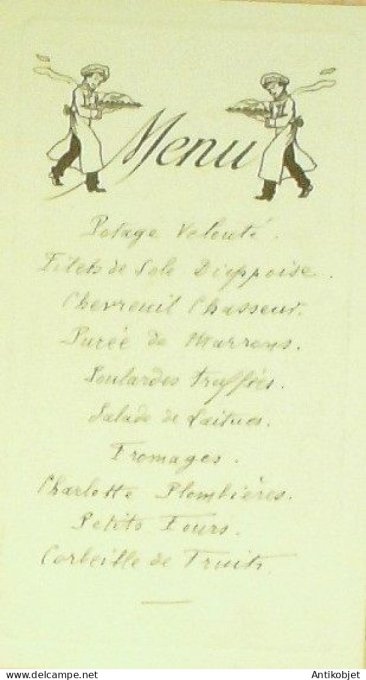 Menu
Potage Velouté.
Filets de Sole Dieppoise.
Chevreuil Chasseur.
Purée de Marrons.
Poulardes Truffées.
Salade de Laitues.
Fromages.
Charlotte Plombières.
Petits Fours.
Corbeille de Fruits.
delcampe.net
Antikobjet